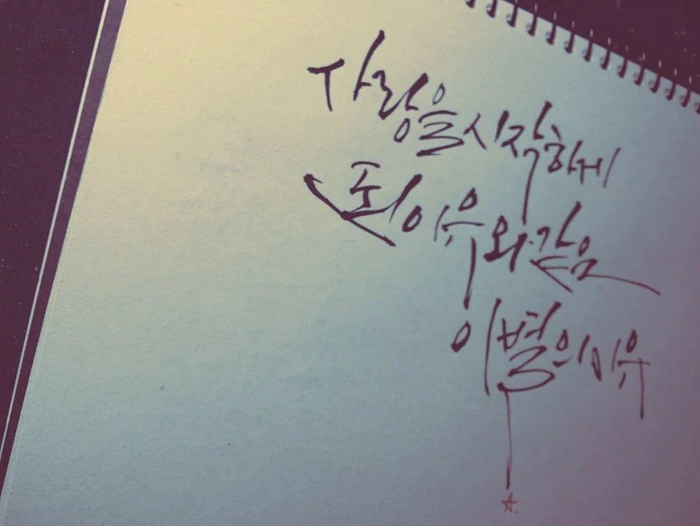 사랑을 시작하게
된 이유와 같은
이별의 이유